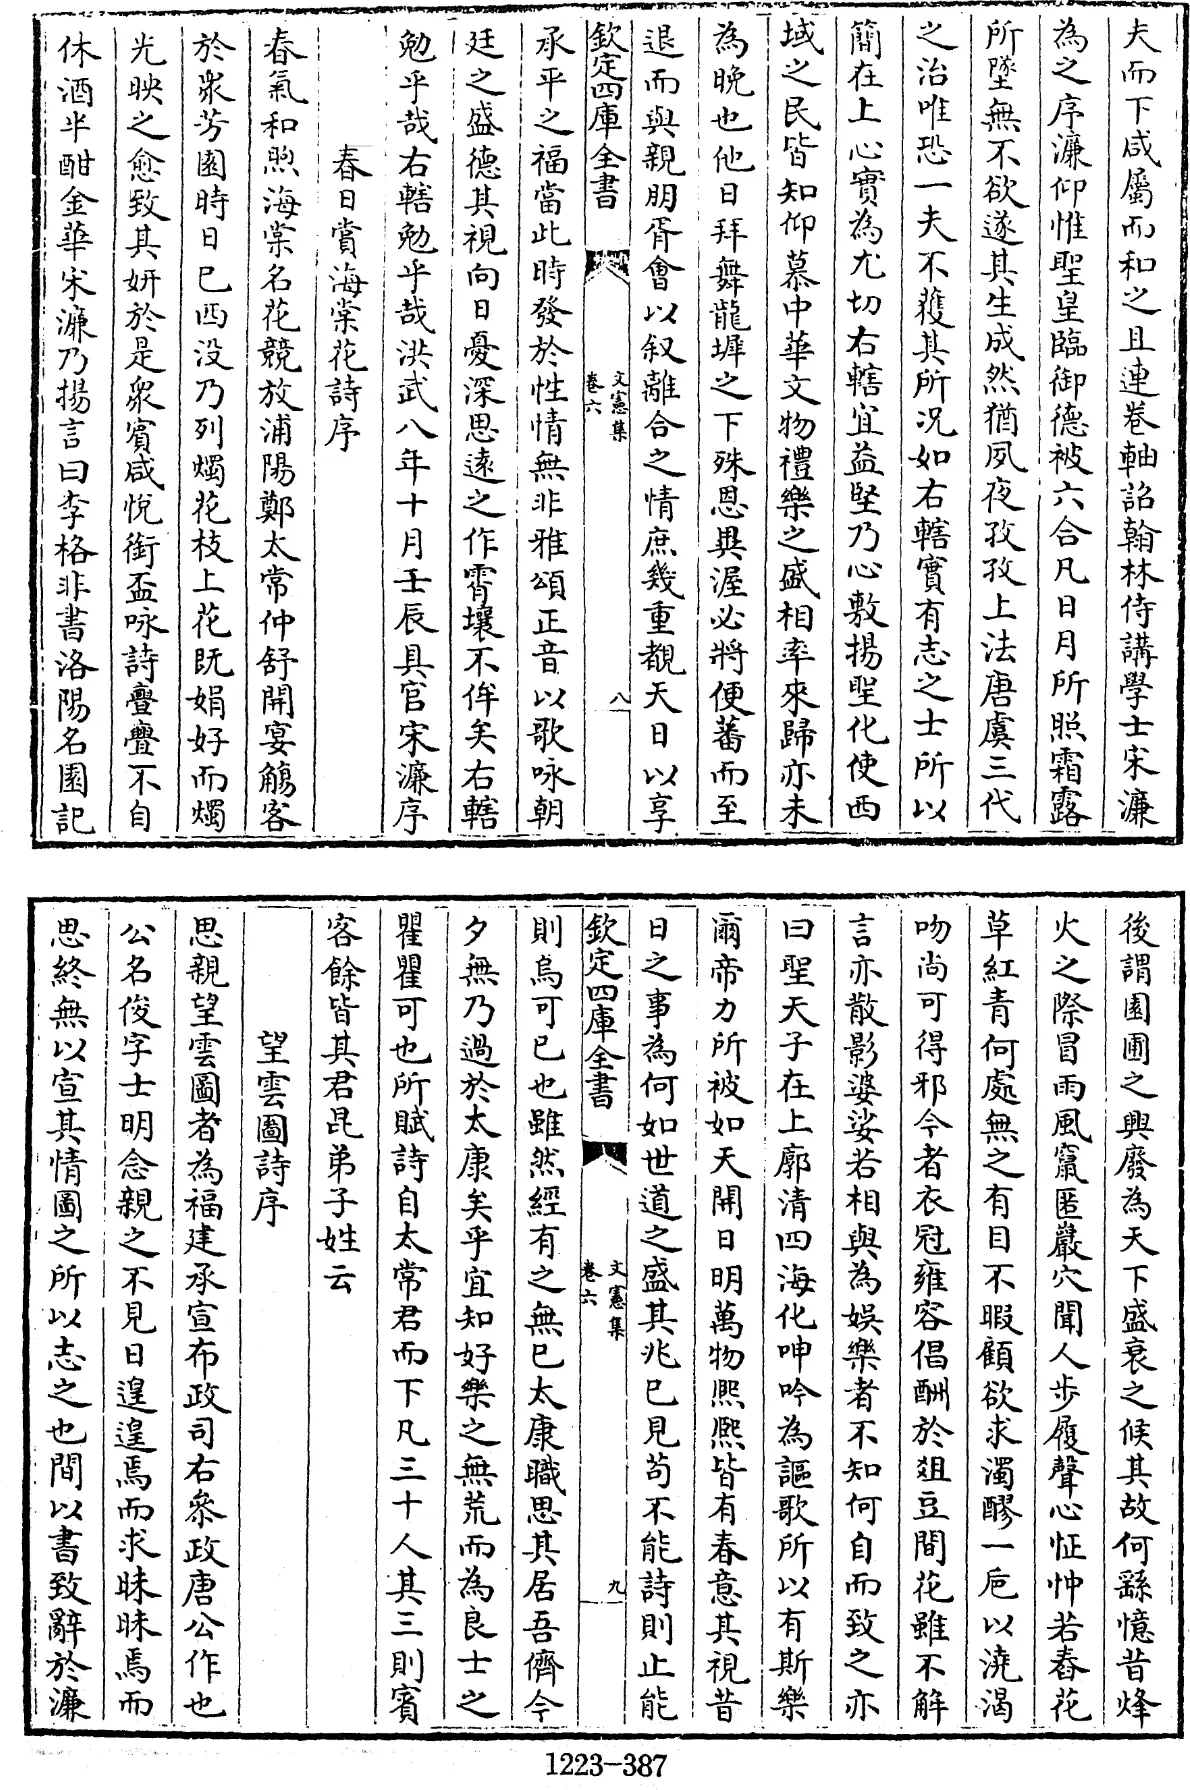 夫而下咸屬而和之且連卷軸詔翰林侍講學士宋濂
為之序濂仰惟聖皇臨御德被六合凡日月所照霜露
所墜無不欲遂其生成然猶夙夜孜孜上法唐虞三代
之治唯恐一夫不獲其所況如右轄實有志之士所以
簡在上心實為尤切右轄宜益堅乃心敷揚聖化使西
域之民皆知仰慕中華文物禮樂之盛相率來歸亦未
為晚也他日拜舞龍墀之下殊恩異渥必將便蕃而至
退而與親朋胥會以叙離合之情庶幾重覩天日以享
欽定四庫全書
文憲集
卷六
八
承平之福當此時發於性情無非雅頌正音以歌咏朝
廷之盛德其視向日憂深思遠之作霄壤不侔矣右轄
勉乎哉右轄勉乎哉洪武八年十月壬辰具官宋濂序
春日賞海棠花詩序
春氣和煦海棠名花競放浦陽鄭太常仲舒開宴觴客
於衆芳園時日已西没乃列燭花枝上花既娟好而燭
光映之愈致其妍於是衆賓咸悅銜盃咏詩亹亹不自
休酒半酣金華宋濂乃揚言曰李格非書洛陽名園記
後謂園圃之興廢為天下盛衰之候其故何繇憶昔烽
火之際冒雨風竄匿巖穴聞人步履聲心怔忡若舂花
草紅青何處無之有目不暇顧欲求濁醪一巵以澆渴
吻尚可得邪今者衣冠雍容倡酬於俎豆間花雖不解
言亦散影婆娑若相與為娛樂者不知何自而致之亦
曰聖天子在上廓清四海化呻吟為謳歌所以有斯樂
爾帝力所被如天開日明萬物熙熙皆有春意其視昔
日之事為何如世道之盛其兆已見茍不能詩則止能
欽定四庫全書
文憲集
卷六
九
則烏可已也雖然經有之無已太康職思其居吾儕今
夕無乃過於太康矣乎宜知好樂之無荒而為良士之
瞿瞿可也所賦詩自太常君而下凡三十人其三則賓
客餘皆其君昆弟子姓云
望雲圖詩序
思親望雲圖者為福建承宣布政司右叅政唐公作也
公名俊字士明念親之不見日遑遑焉而求昧昧焉而
思終無以宣其情圖之所以志之也間以書致辭於濂
1223-387